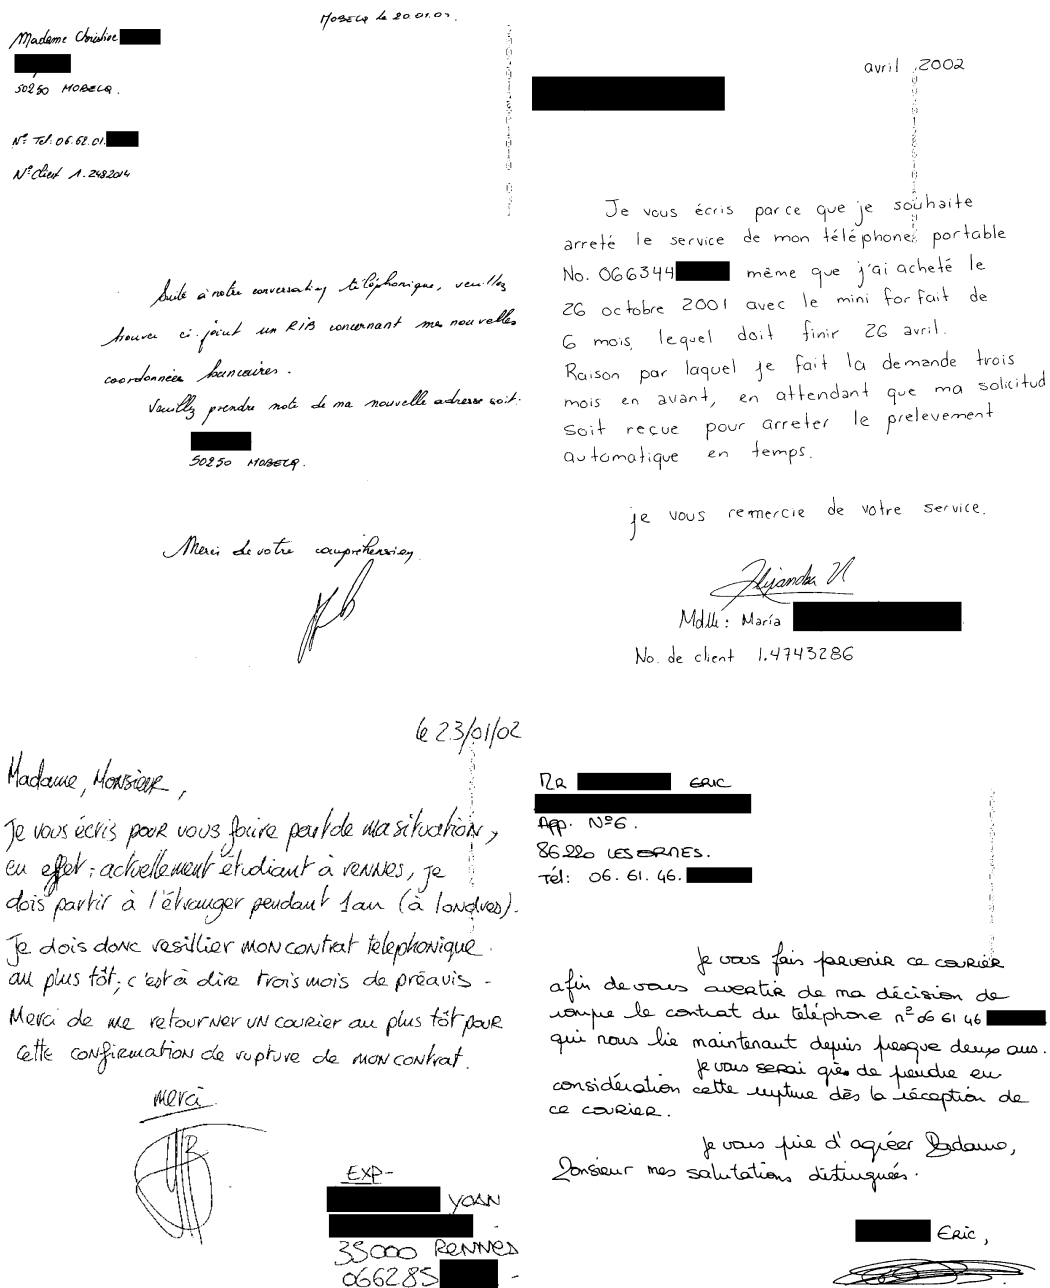 Mobecq le 20.01.0
Madame Christine
50250 MOBECQ.
N° Tel: 06.62.01.
N° Client 1.2482014
Suite à notre conversation téléphonique, veuillez
trouver ci-joint un RIB concernant mes nouvelles
coordonnées bancaires.
Veuillez prendre note de ma nouvelle adresse soit:
50250 MOBECQ.
Merci de votre compréhension.
avril 2002
Je vous écris parce que je souhaite
arreté le service de mon téléphone portable
No. 066344 même que j'ai acheté le
26 octobre 2001 avec le mini forfait de
6 mois, lequel doit finir 26 avril.
Raison par laquel je fait la demande trois
mois en avant, en attendant que ma solicitud
soit reçue pour arreter le prelevement
automatique en temps.
je vous remercie de votre service.
Alejandra V
Mdlle: María
No. de client 1.4743286
le 23/01/02
Madame, Monsieur,
Je vous écris pour vous faire part de ma situation,
en effet; actuellement étudiant à rennes, je
dois partir à l'étranger pendant 1an (à londres).
Je dois donc resillier mon contrat telephonique
au plus tôt; c'est à dire trois mois de préavis -
Merci de me retourner un courier au plus tôt pour
cette confirmation de rupture de mon contrat.
merci
EXP-
YOAN
35000 RENNES
066285 -
Mr ERIC
App. N°6.
86220 LES ORMES.
Tél: 06. 61. 46.
Je vous fais parvenir ce courier
afin de vous avertir de ma décision de
rompre le contrat du téléphone n° 06 61 46
qui nous lie maintenant depuis presque deux ans.
Je vous serai grès de prendre en
considération cette rupture dès la réception de
ce courier.
Je vous prie d'agréer Madame,
Monsieur mes salutations distinguées.
Eric,